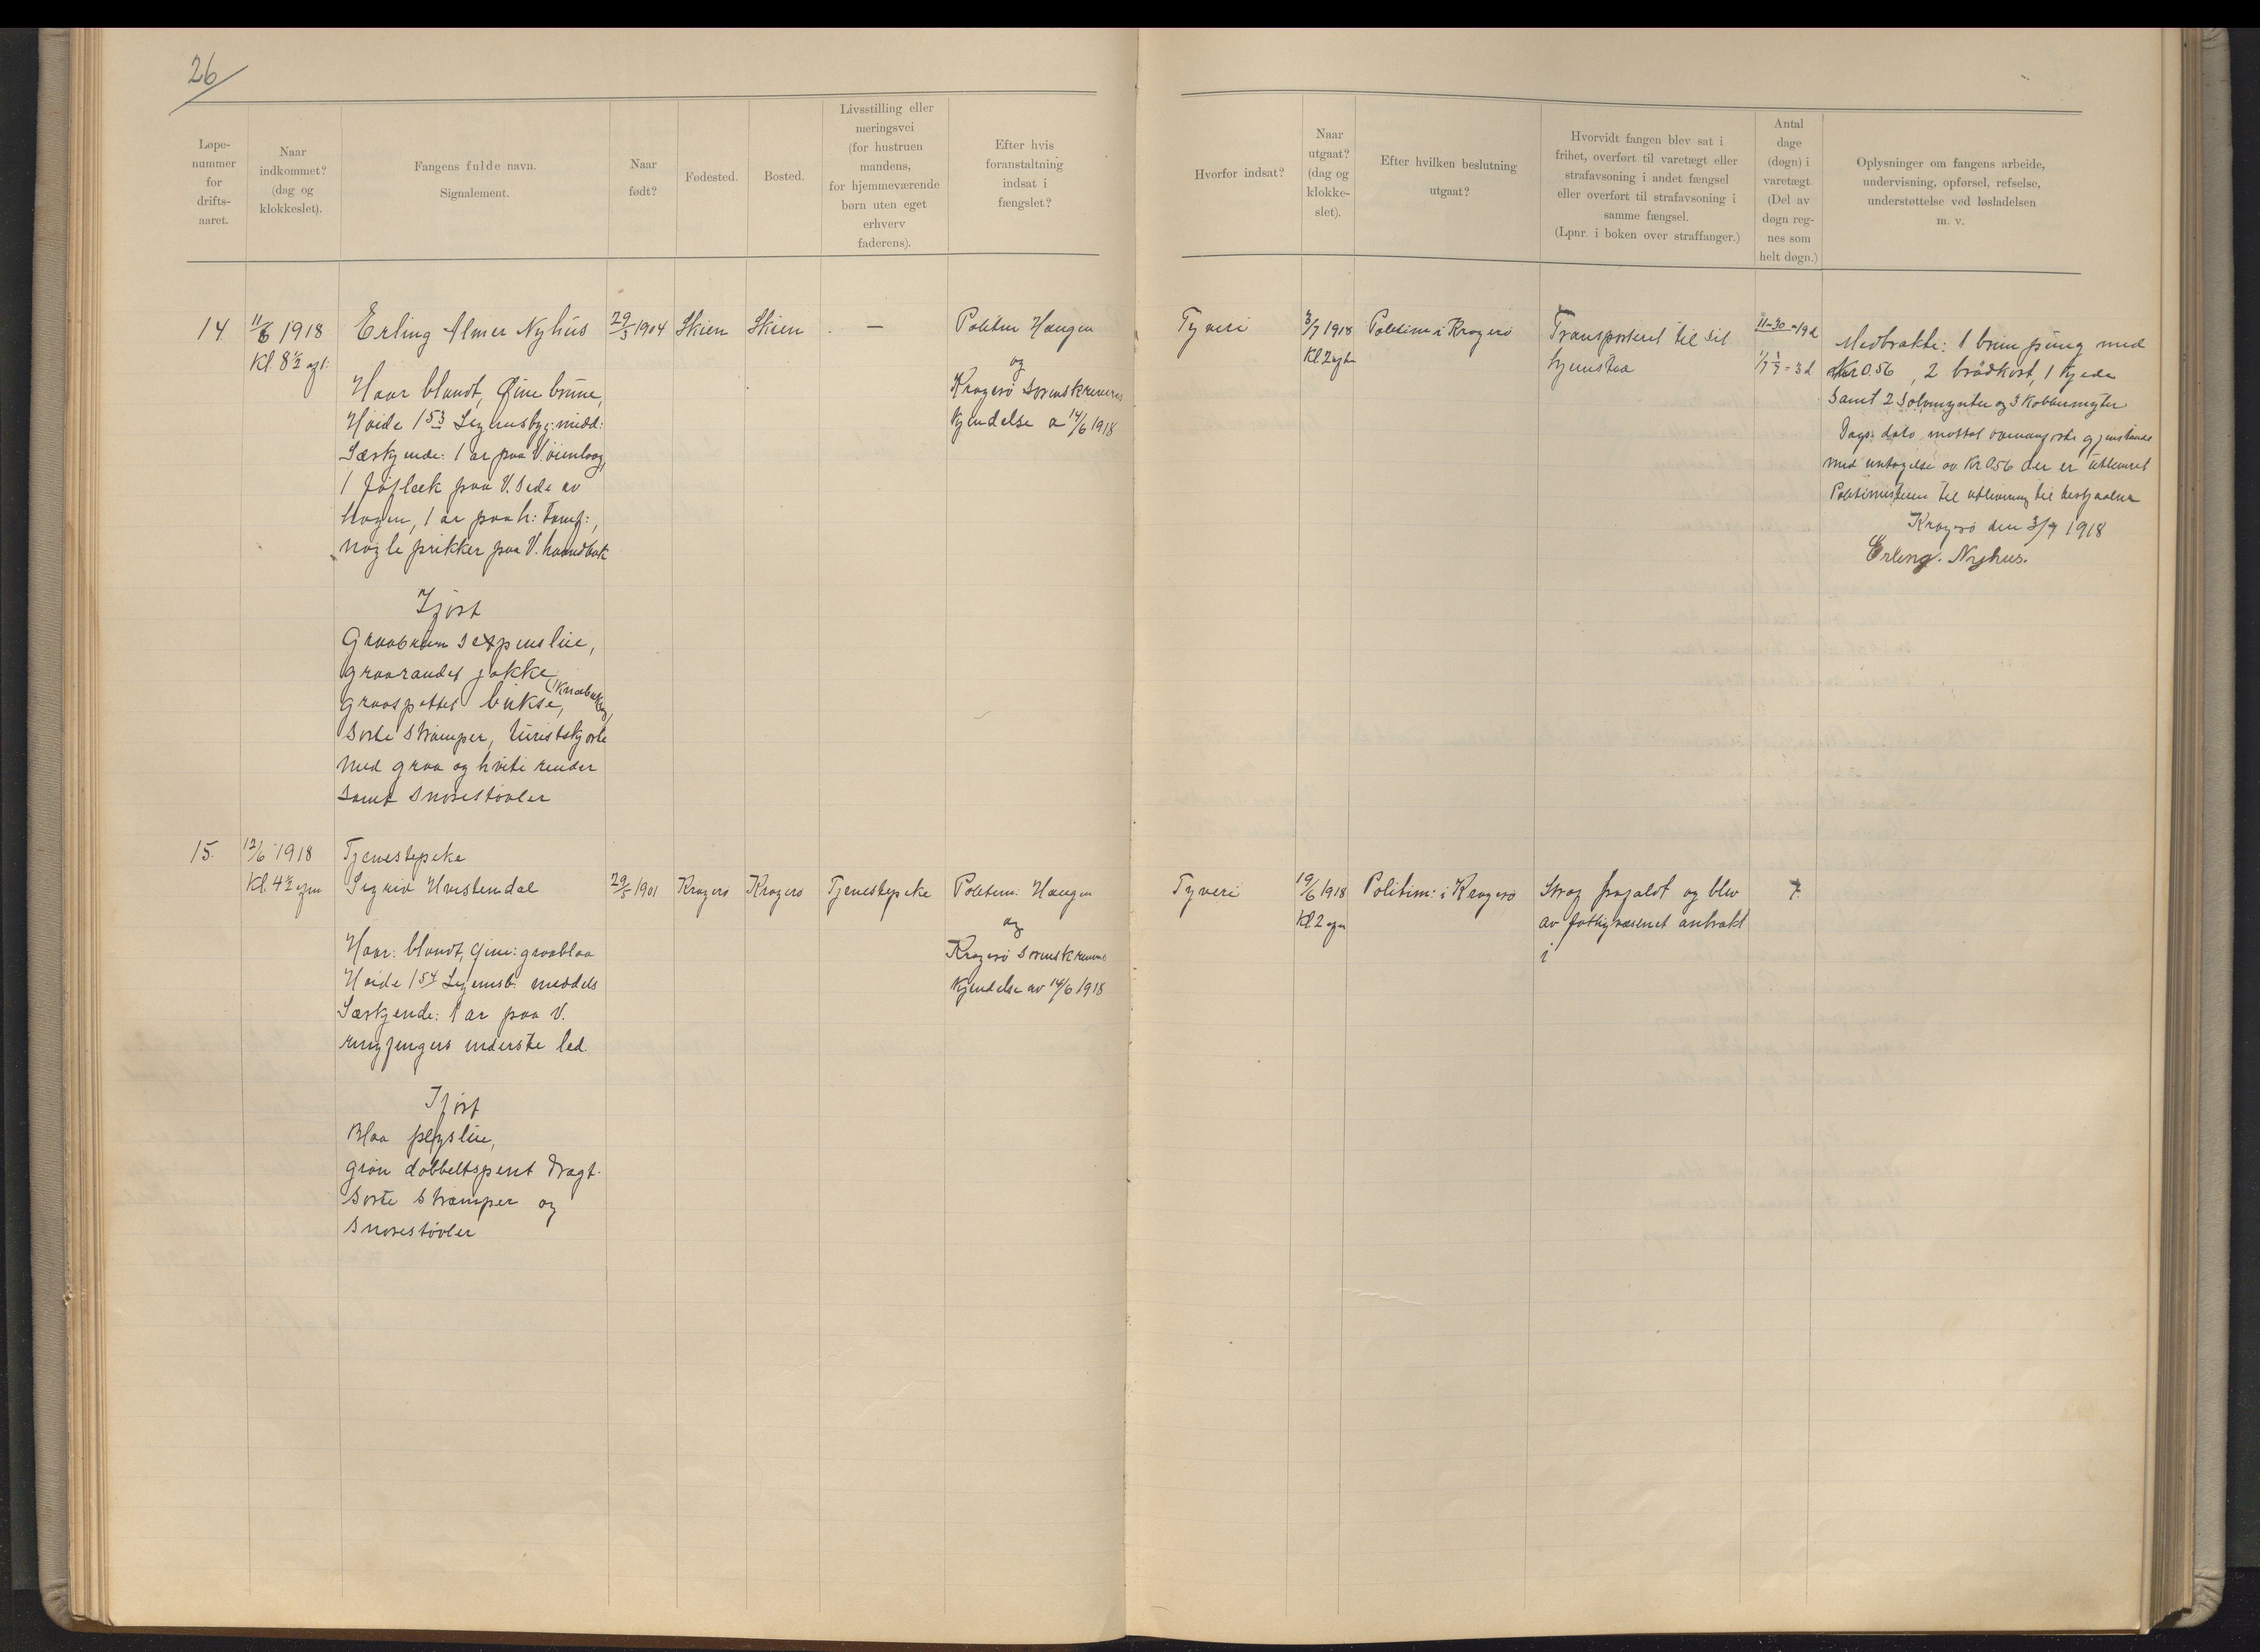 26
Løpe-
nummer
for
drifts-
aaret.
Naar
indkommet?
(dag og
klokkeslet).
Fangens fulde navn.
Signalement.
Naar
født?
Fødested.
Bosted.
Livsstilling eller
næringsvei
(for hustruen
mandens,
for hjemmeværende
børn uten eget
erhverv
faderens).
Efter hvis
foranstaltning
indsat i
fængslet?
Hvorfor indsat?
Naar
utgaat?
(dag og
klokke-
slet).
Efter hvilken beslutning
utgaat?
Hvorvidt fangen blev sat i
frihet, overført til varetægt eller
strafavsoning i andet fængsel
eller overført til strafavsoning i
samme fængsel.
(Lpnr. i boken over straffanger.)
Antal
dage
(døgn) i
varetægt
(Del av
døgn reg-
nes som
helt døgn.)
Oplysninger om fangens arbeide,
undervisning, opførsel, refselse,
understøttelse ved løsladelsen
m. v.
14
11/6 1918
Kl. 8½
Erling Almer Nyhus
Haar blondt, Øine brune,
Høide 153 Legemsbyg: midd:
Særkjende: 1 ar paa V. øienlaag,
1 føflæk paa V. side av
hagen, 1 ar paa h:
nogle prikker paa V. haandbak
Iført
Graabrun sexpenslue,
graarandet jakke
graaspettet bukse, (Knæbukse),
Sorte Strømper, turistskjorte
med graa og hvite render
samt Snørestøvler
29/3 1904
Skien
Skien
—
Politim Haugen
og
Kragerø Sorenskriveris
Kjendelse a 14/6 1918
Tyveri
3/7 1918
Kl 2
Politim i Kragerø
Transporteret til sit
hjemsted
11-30 = 19 d
1/7 3/7 = 3 d
Medbrakte: 1 brun pung med
Kr 0.56, 2 brödkort, 1 kjede
samt 2 Sølvmynter og 3 Kobbermynter
Dags. dato mottat ovennævnte gjenstande
med untagelse av Kr 0.56 der er utleveret
Politimesteren til utlevering til bestjaalne
Kragerø den 3/7 1918
Erling. Nyhus.
15.
12/6 1918
Kl. 4½ efm
Tjenestepike
Sigrid Hvistendal
Haar: blondt, Øine: graablaa
Høide 154 Legemsb. middels
Særkjende: 1 ar paa V.
ringfingers underste led.
Iført
Blaa plyslue,
grøn dobbeltspent dragt.
Sorte Strømper og
Snørestøvler
29/5 1901
Kragerø
Kragerø
Tjenestepike
Politim: Haugen
og
Kragerø Sorenskriveris
Kjendelse av 14/6 1918
Tyveri
19/6 1918
Kl 2
Politim: i Kragerø
Strag frafaldt og blev
av fattigvæsenet anbrakt
i
7.